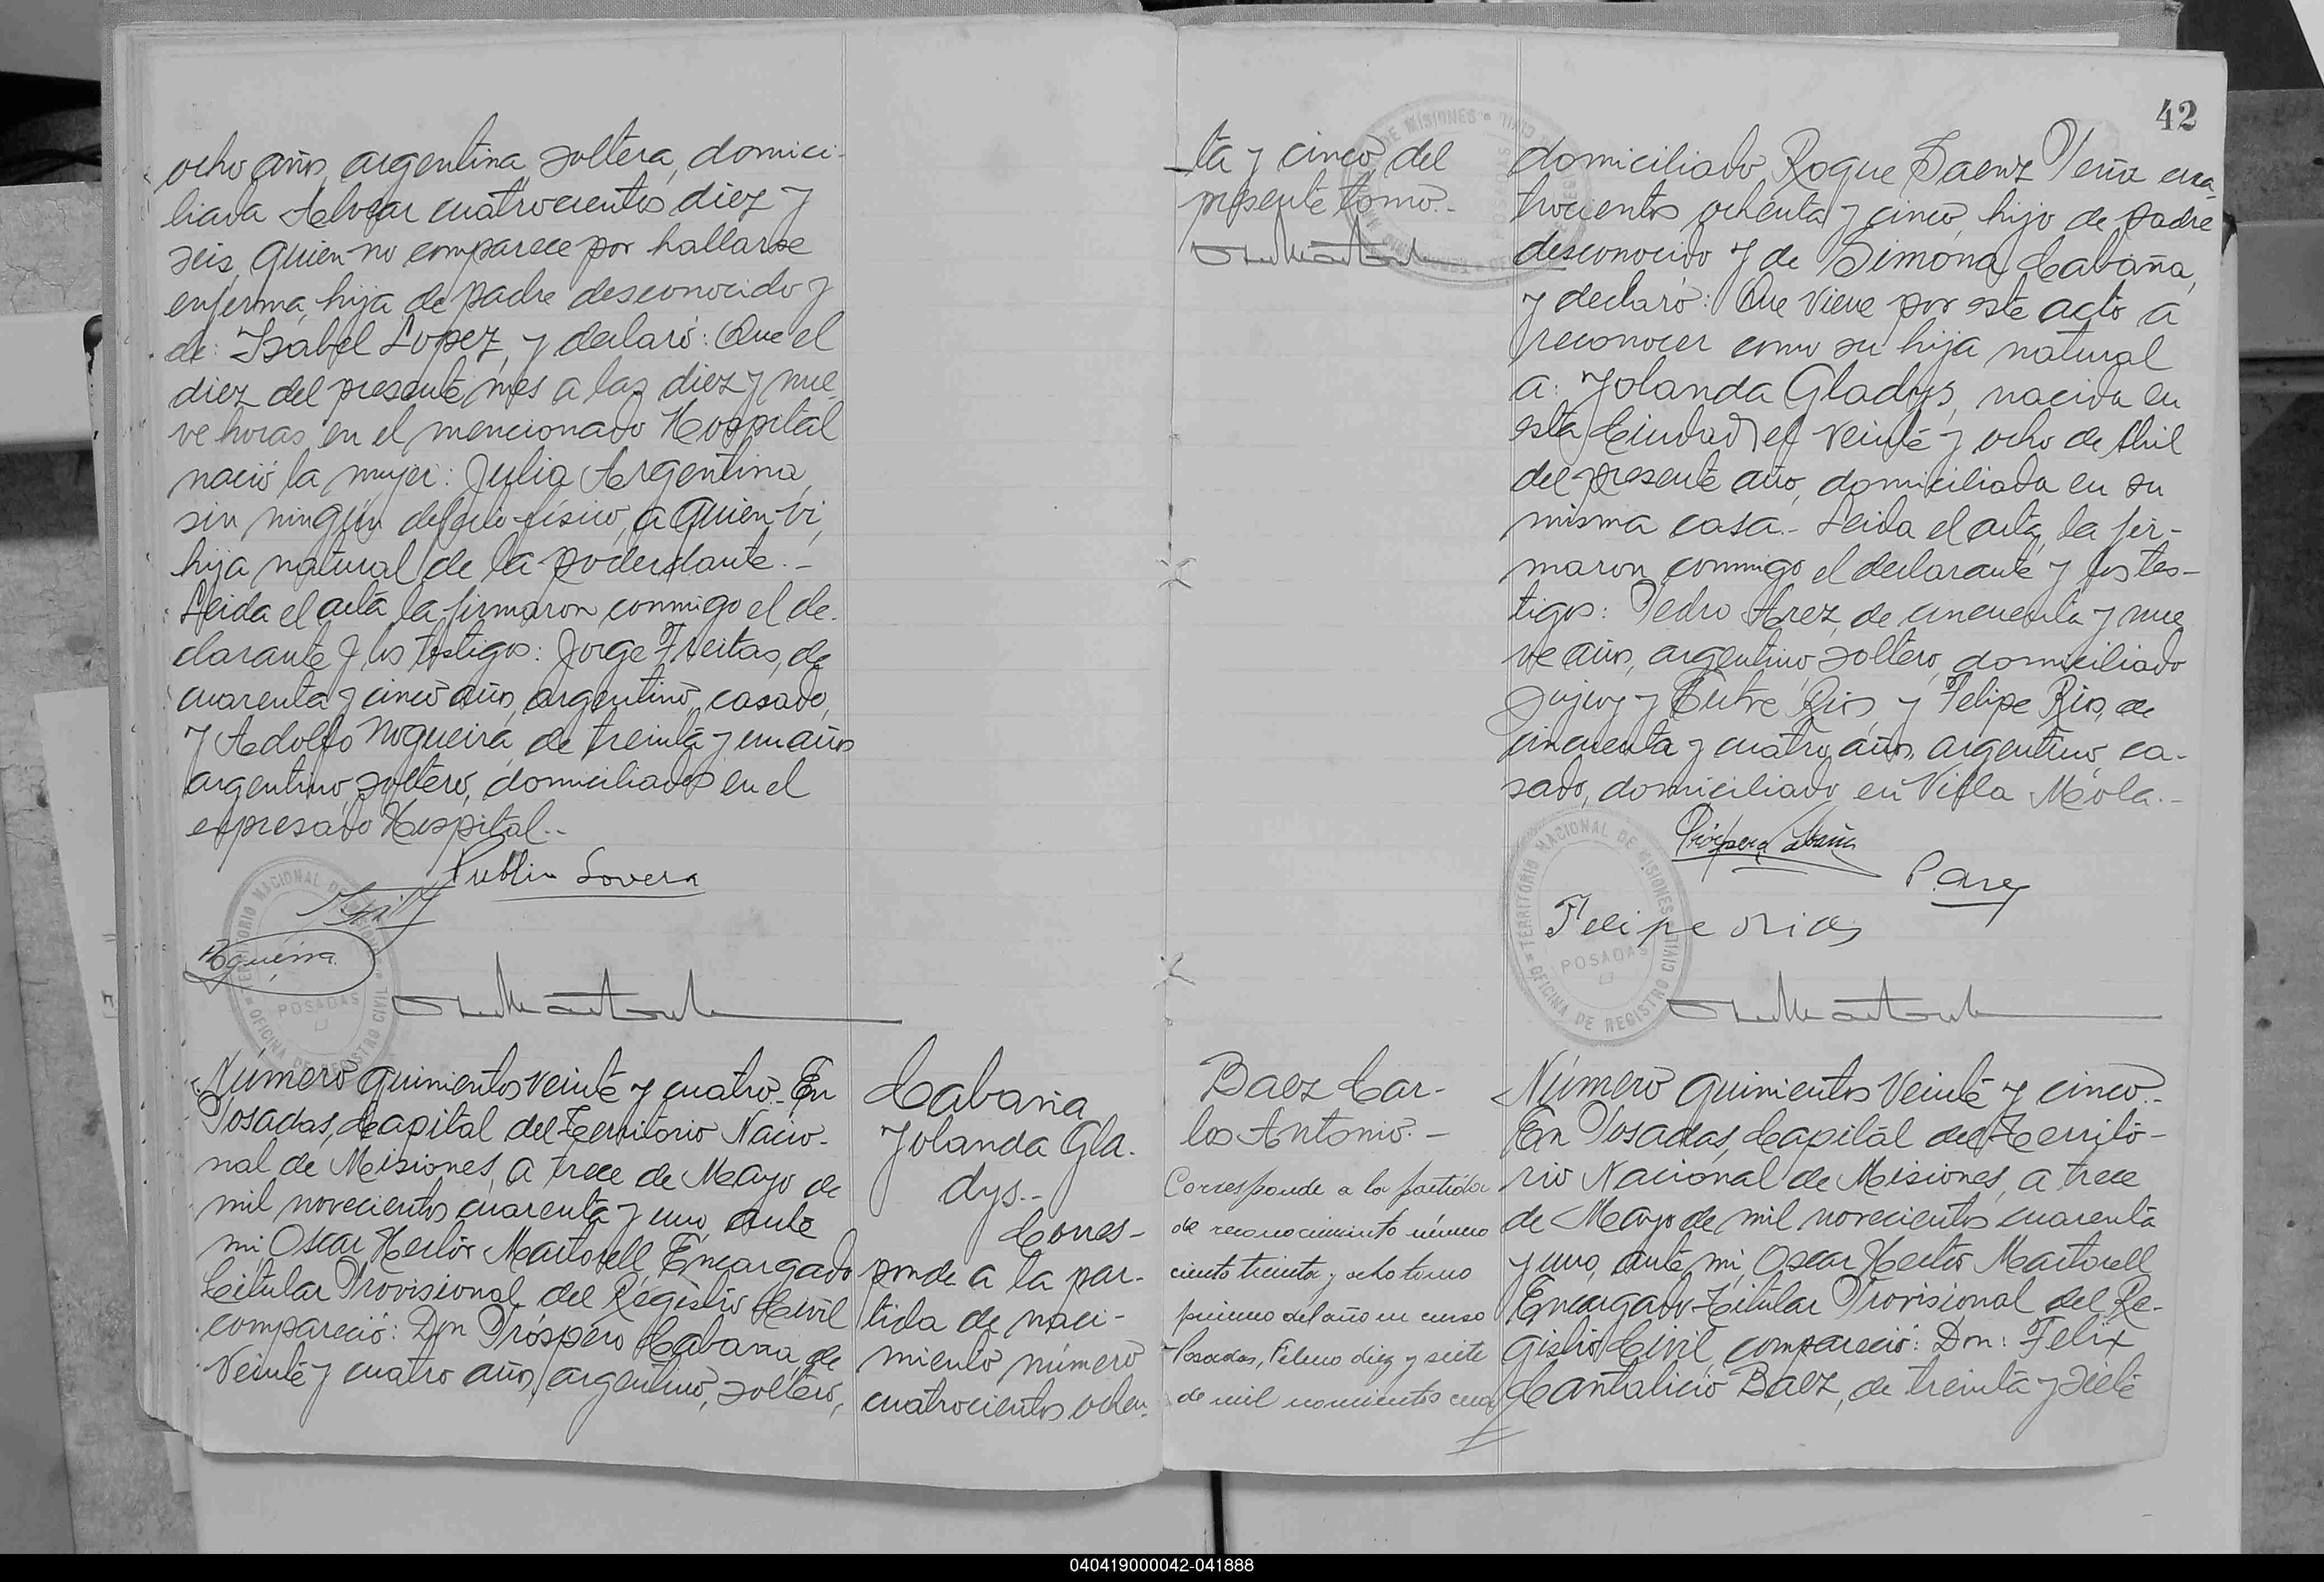 ocho años, argentina, soltera, domici-
liada Alvear cuatrocientos diez y
seis, quien no comparece por hallarse
enferma, hija de padre desconocido y
de: Isabel Lopez, y declaró: Que el
diez del presente mes a las diez y nue-
ve horas, en el mencionado Hospital
nació la mujer: Julia Argentina,
sin ningún defecto físico, a quien vi,
hija natural de la poderdante.-
Leida el acta la firmaron conmigo el de-
clarante y los testigos: Jorge Freitas, de
cuarenta y cinco años, argentino, casado,
y Adolfo Nogueira, de treinta y un años
argentino, soltero, domiciliados en el
expresado Hospital.-
Publio Lovera
Nogueira
TERRITORIO NACIONAL DE MISIONES
OFICINA DE REGISTRO CIVIL
POSADAS
Número quinientos veinte y cuatro.- En
Posadas, Capital del Territorio Nacio-
nal de Misiones, a trece de Mayo de
mil novecientos cuarenta y uno, ante
mi Oscar Hector Martorell, Encargado
Titular Provisional del Registro Civil
compareció: Don Próspero Cabaña, de
veinte y cuatro años, argentino, soltero,
Cabaña
Yolanda Gla-
dys.-
Corres-
ponde a la par-
tida de naci-
miento número
cuatrocientos ochen-
ta y cinco del
presente tomo.-
42
domiciliado Roque Saenz Peña cua-
trocientos ochenta y cinco, hijo de padre
desconocido y de Simona Cabaña,
y declaró: Que viene por este acto a
reconocer como su hija natural
a: Yolanda Gladys, nacida en
esta Ciudad el veinte y ocho de Abril
del presente año, domiciliada en su
misma casa.- Leida el acta, la fir-
maron conmigo el declarante y los tes-
tigos: Pedro Arez, de cincuenta y nue
ve años, argentino, soltero, domiciliado
Jujuy y Entre Rios y Felipe Rios, de
cincuenta y cuatro años, argentino, ca-
sado, domiciliado en Villa Mola.-
Próspero Cabaña
P. Arez
Felipe Rios
TERRITORIO NACIONAL DE MISIONES
OFICINA DE REGISTRO CIVIL
POSADAS
Baez Car-
los Antonio.-
Corresponde a la partida
de reconocimiento número
ciento treinta y ocho tomo
primero del año en curso
Posadas, Febrero diez y siete
de mil novecientos cua
Número quinientos veinte y cinco.-
En Posadas, Capital del Territo-
rio Nacional de Misiones, a trece
de Mayo de mil novecientos cuarenta
y uno, ante mi, Oscar Hector Martorell
Encargado Titular Provisional del Re-
gistro Civil, compareció: Don: Felix
Cantalicio Baez, de treinta y siete
040419000042-041888